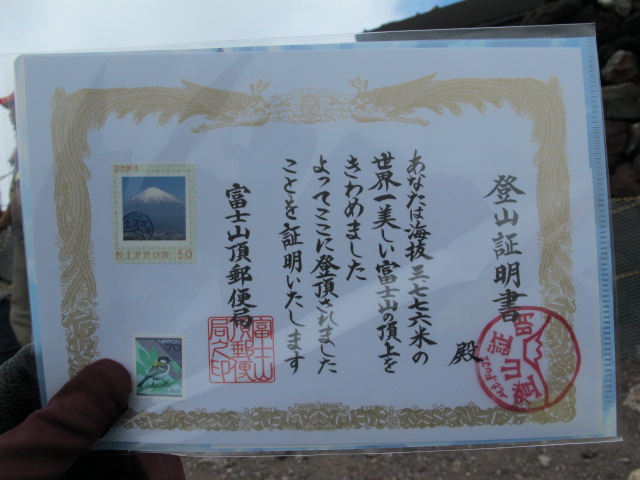 登山証明書
殿
あなたは海抜三七七六米の
世界一美しい富士山の頂上を
きわめました
よってここに登頂されました
ことを証明いたします
富士山頂郵便局
富士山
頂郵便
局之印
NIPPON 50
NIPPON
70